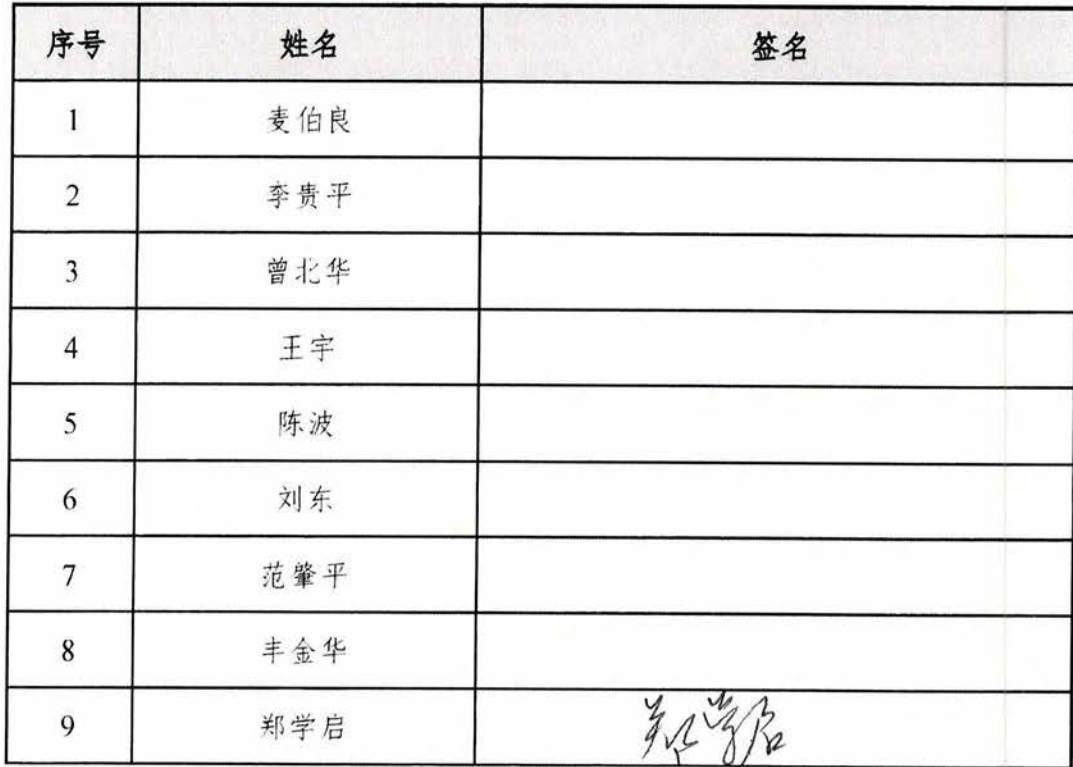 序号 姓名 签名
1 麦伯良
2 李贵平
3 曾北华
4 王宇
5 陈波
6 刘东
7 范肇平
8 丰金华
9 郑学启 郑学启